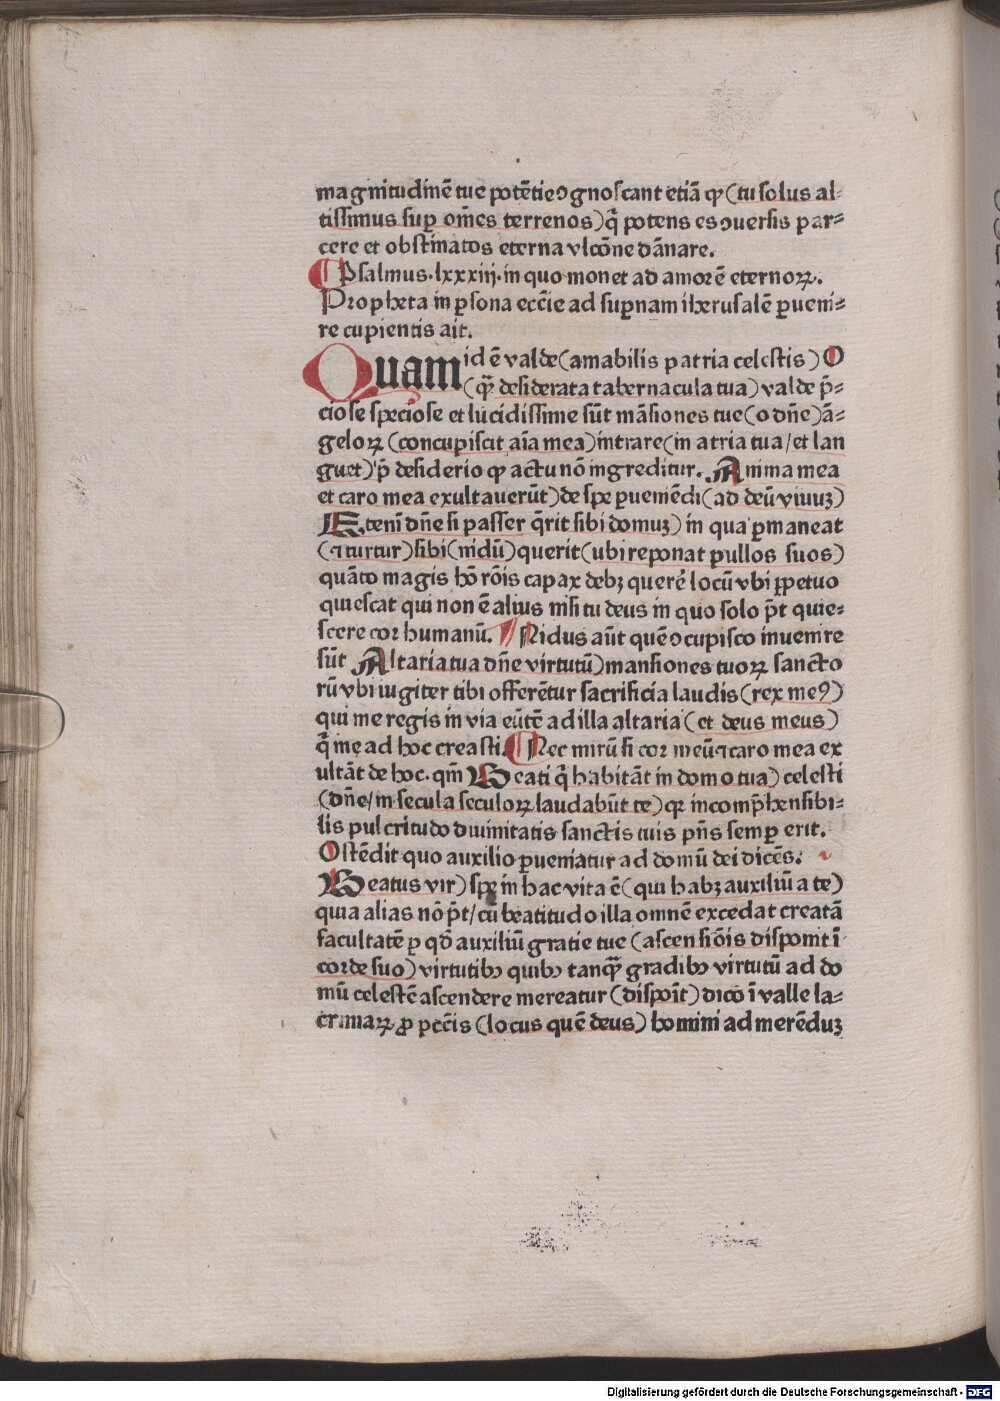 magnitudinē tue potētie ↄgnoſcant etiā ꝙ (tu ſolus al⸗
tiſſimus ſuꝑ om̄es terrenos) q̄ potens es ↄuerſis par⸗
cere et obſtinatos eterna vlcōne dānare.
¶ Pſalmus. lxxxiij. in quo monet ad amorē eternoꝝ.
Propheta in ꝑſona eccīe ad ſuꝑnam iheruſalē ꝑueni⸗
re cupientis ait.
Quam id ē valde (amabilis patria celeſtis) O
(ꝙ̄ deſiderata tabernacula tua) valde p̄⸗
cioſe ſpecioſe et lucidiſſime ſūt māſiones tue (o dn̄e) ā⸗
geloꝝ (concupiſcit aīa mea) intrare (in atria tua / et lan
guet) p̄ deſiderio ꝙ actu nō ingreditur. Anima mea
et caro mea exultauerūt) de ſpe ꝑueniēdi (ad deū viuuꝫ)
Etenī dn̄e ſi paſſer q̄rit ſibi domuꝫ) in qua ꝑmaneat
(⁊ turtur) ſibi (nidū) querit (ubi reponat pullos ſuos)
quāto magis hō rōis capax debꝫ querē locū vbi ꝑpetuo
quieſcat qui non ē alius niſi tu deus in quo ſolo p̄t quie⸗
ſcere cor humanū. ¶ Nidus aūt quē ↄcupiſco inuenire
ſūt Altaria tua dn̄e virtutū) manſiones tuoꝝ ſancto
rū vbi iugiter tibi offerētur ſacrificia laudis (rex meꝰ)
qui me regis in via eūtē ad illa altaria (et deus meus)
q̄ me ad hoc creaſti. ¶ Nec mirū ſi cor meū ⁊ caro mea ex
ultāt de hoc. qm̄ Beati q̄ habitāt in domo tua) celeſti
(dn̄e / in ſecula ſeculoꝝ laudabūt te) qꝛ incomp̄henſibi⸗
lis pulcritudo diuinitatis ſanctis tuis pn̄s ſemꝑ erit.
Oſtēdit quo auxilio ꝑueniatur ad domū dei dicēs.
Beatus vir) ſpe in hac vita ē (qui habꝫ auxiliū a te)
quia alias nō p̄t / cū beatitudo illa omnē excedat creatā
facultatē ꝑ qd̄ auxiliū gratie tue (aſcenſiōis diſponit ī
corde ſuo) virtutibꝰ quibꝰ tanqꝫ̄ gradibꝰ virtutū ad do
mū celeſtē aſcendere mereatur (diſpoīt) dico ī valle la⸗
crimaꝝ ꝓ pctīs (locus quē deus) homini ad merēduꝫ
Digitalisierung gefördert durch die Deutsche Forschungsgemeinschaft - DFG